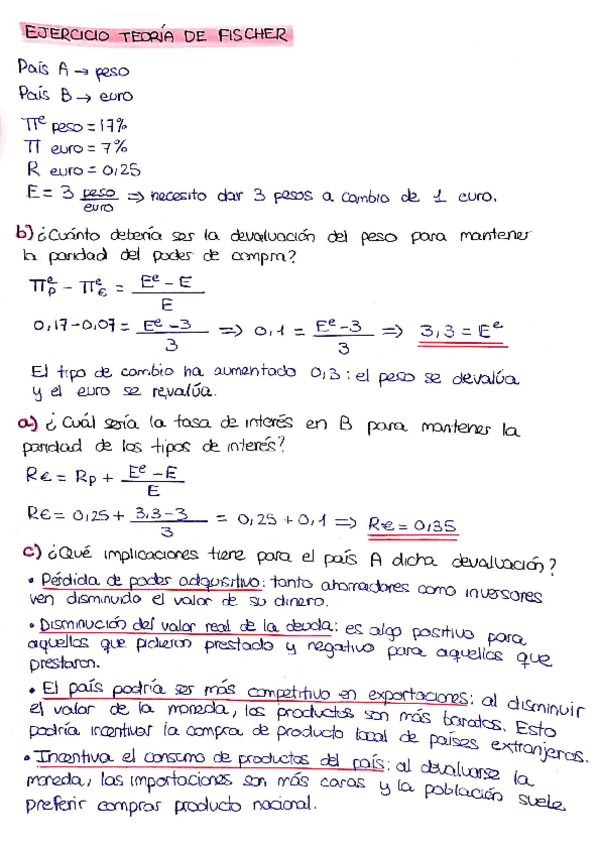 EJERCICIO TEORÍA DE FISCHER
País A → peso
País B → euro
πe peso = 17%
π euro = 7%
R euro = 0,25
E = 3 peso/euro ⇒ necesito dar 3 pesos a cambio de 1 euro.
b) ¿Cuánto debería ser la devaluación del peso para mantener
la paridad del poder de compra?
πe p - πe € = Ee - E / E
0,17-0,07 = Ee - 3 / 3 ⇒ 0,1 = Ee - 3 / 3 ⇒ 3,3 = Ee
El tipo de cambio ha aumentado 0,3: el peso se devalúa
y el euro se revalúa.
a) ¿Cuál sería la tasa de interés en B para mantener la
paridad de los tipos de interés?
R€ = Rp + Ee - E / E
R€ = 0,25 + 3,3-3 / 3 = 0,25 + 0,1 ⇒ R€ = 0,35
c) ¿Qué implicaciones tiene para el país A dicha devaluación?
• Pérdida de poder adquisitivo: tanto ahorradores como inversores
ven disminuido el valor de su dinero.
• Disminución del valor real de la deuda: es algo positivo para
aquellos que pidieron prestado y negativo para aquellos que
prestaron.
• El país podría ser más competitivo en exportaciones: al disminuir
el valor de la moneda, los productos son más baratos. Esto
podría incentivar la compra de producto local de países extranjeros.
• Incentiva el consumo de productos del país: al devaluarse la
moneda, las importaciones son más caras y la población suele
preferir comprar producto nacional.